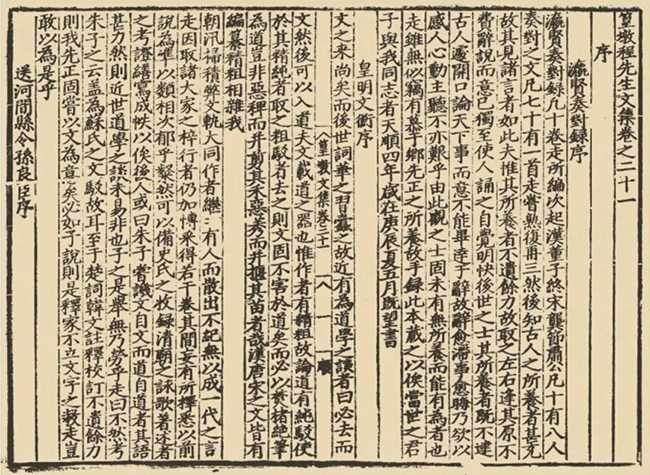 篁墩程先生文集卷之二十一
序
瀛賢奏對錄序
瀛賢奏對錄凡十卷走所編次起漢董子終宋龔節肅公凡十有八人
奏對之文凡七十有一首走嘗熟復再三然後知古人之所養者甚充
故其見諸言者如此夫惟其所養者不遺餘力故取之左右逢其原不
費辭說而意已獨至使人誦之自覺明快後世之士其所養者既不逮
古人遽開口論天下事而意不能畢達于辭故辭愈滯事愈晦乃欲以
感人心動主聽不亦艱乎由此觀之士固未有無所養而能有為者也
走雖無似竊有慕于鄉先正之所養故手錄此本藏之以俟當世之君
子與我同志者天順四年歲在庚辰夏五月既望書
皇明文衡序
文之來尚矣而後世詞華之習蠹之故近有為道學之談者曰必去而
篁墩文集卷二十一 八 一
文然後可以入道夫文載道之器也惟作者有精粗故論道有純駁使
於其精純者取之粗駁者去之則文固不害於道矣而必以焚楮絕筆
為道豈非惡稗而并剪其禾惡莠而并揠其苗者哉漢唐宋之文皆有
編纂精粗相雜我
朝汛掃積弊文軌大同作者繼有人而散出不記無以成一代之言
走因取諸大家之梓行者仍加博采得若干卷其間妄有所擇悉以前
說為準以類相次郁乎粲然可以備史氏之收錄清朝之詠歌著述者
之考證繕寫成帙以俟後人或曰朱子嘗譏文自文而道自道者其語
甚力然則近世道學之談未易非也子之是舉無乃勞乎走曰不然考
朱子之云蓋為蘇氏之文駁故耳至于楚詞韓文註釋校訂不遺餘力
則我先正固嘗以文為意矣必如子說則是釋家不立文字之教走豈
敢以為是乎
送河間縣令孫良臣序